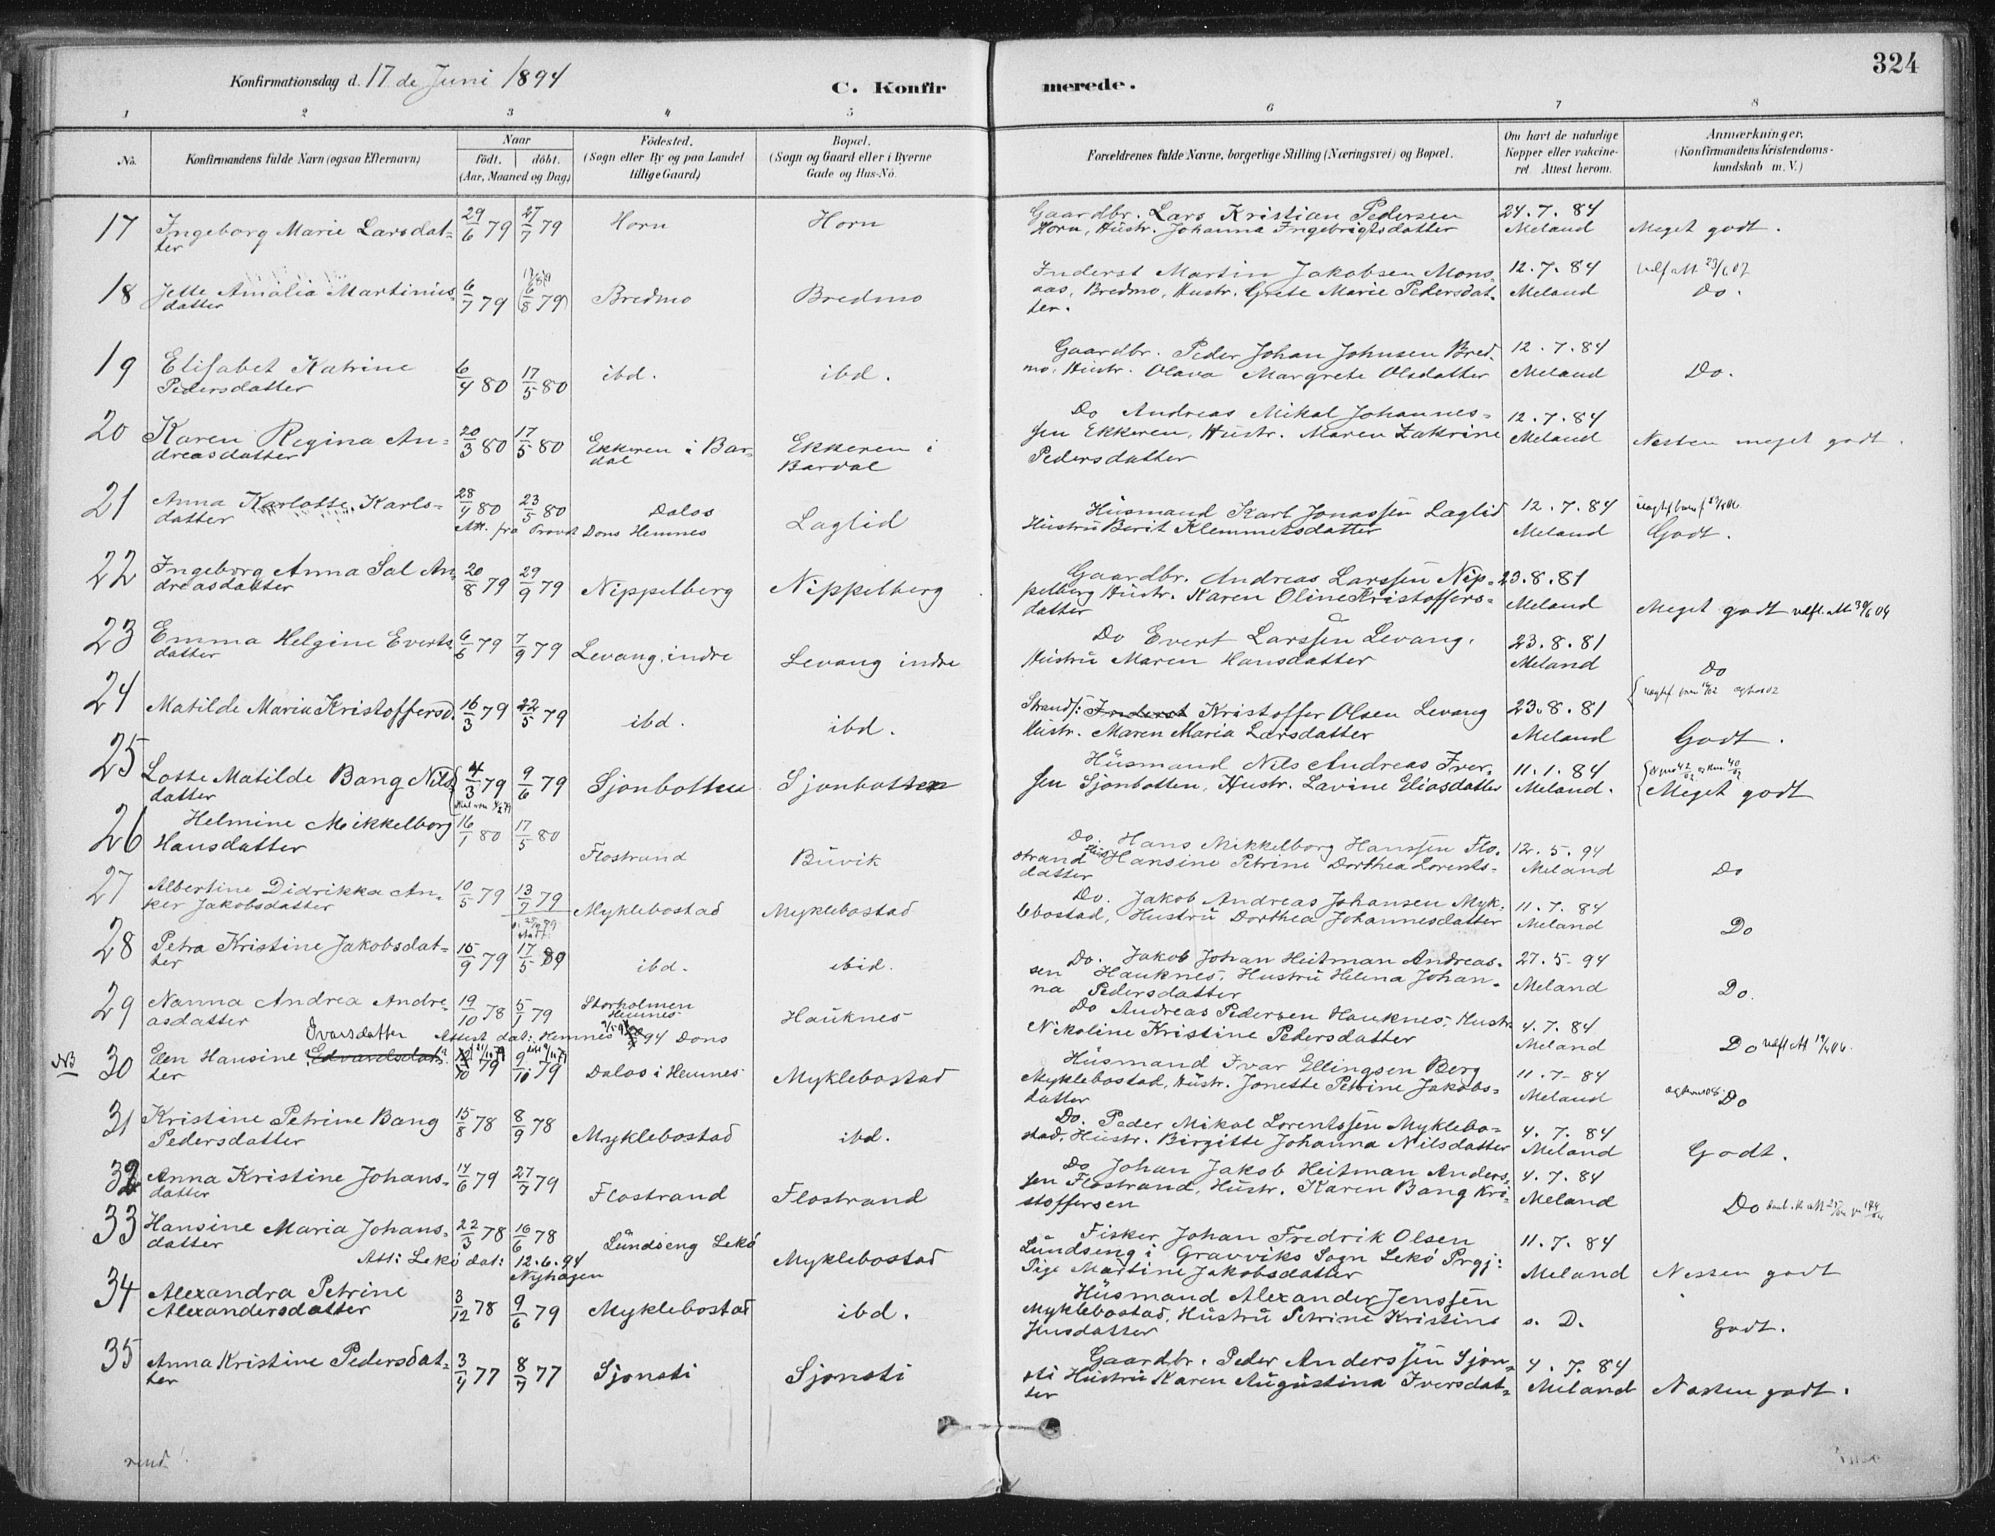 324
Konfirmationsdag d. 17 de Juni 1894
C. Konfirmerede.
1 2 3 4 5 6 7 8
No. Konfirmandens fulde Navn (ogsaa Efternavn) Naar födt. döbt. (Aar, Maaned og Dag) Födested. (Sogn eller By og paa Landet tillige Gaard) Bopæl. (Sogn og Gaard eller i Byerne Gade og Hus-No. Forældrenes fulde Navne, borgerlige Stilling (Næringsvei) og Bopæl. Om havt de naturlige Kopper eller vakcineret. Attest herom. Anmærkninger. (Konfirmandens Kristendomskundskab m. V.)
17 Ingeborg Marie Larsdatter 29/6 79 27/7 79 Horn Horn Gaardbr. Lars Kristian Pedersen Horn, Hustr. Johanna Ingebrigtsdatter 24.7.84 Meland Meget godt.
18 Jette Amalia Martinusdatter 6/7 79 (6/8 79) Bredmo Bredmo Inderst Martin Jakobsen Monsaas, Bredmo, Hustr. Grete Marie Pedersdatter. 12.7.84 Meland Do.
19 Elisabet Katrine Pedersdatter 6/4 80 17/5 80 ibd. ibd. Gaardbr. Peder Johan Johnsen Bredmo, Hustr. Olava Margrete Olsdatter 12.7.84 Meland Do.
20 Karen Regina Andreasdatter 20/3 80 17/5 80 Ekkeren i Bardal Ekkeren i Bardal Do Andreas Mikal Johannessen Ekkeren, Hustr. Maren Zakrine Pedersdatter 12.7.84 Meland Nesten meget godt.
21 Anna Karlotte Karlsdatter 28/4 80 23/5 80 Att. fra Provst Dons Hemnes Dalos Laglid Husmand Karl Jonassen Laglid Hustru Berit Klemmetsdatter 12.7.84 Meland Godt.
22 Ingeborg Anna Sal Andreasdatter 20/8 79 29/9 79 Nippelberg Nippelberg Gaardbr. Andreas Larssen Nippelberg Hustr. Karen Oline Kristoffersdatter 23.8.81 Meland Meget godt
23 Emma Helgine Evertsdatter 6/6 79 7/9 79 Levang, indre Levang indre Do Evert Larssen Levang. Hustru Maren Hansdatter 23.8.81 Meland Do
24 Matilde Maria Kristoffersd. 16/3 79 22/5 79 ibd. ibd. Strands: Inderst Kristoffer Olsen Levang Hustr. Maren Maria Larsdatter 23.8.81 Meland Godt.
25 Lotte Matilde Bang Nilsdatter 4/3 79 9/6 79 Sjonbotten Sjonbotten Husmand Nils Andreas Iversen Sjonbotten, Hustr. Lavine Eliasdatter 11.1.84 Meland. Meget godt
26 Helmine Mikkelborg Hansdatter 16/1 80 17/5 80 Flostrand Buvik Do. Hans Mikkelborg Hanssen Flostrand Hustr. Hansine Petrine Dorthea Lorentsdatter 12.5.94 Meland Do
27 Albertine Didrikka Anker Jakobsdatter 10/5 79 13/7 79 Myklebostad Myklebostad Do. Jakob Andreas Johansen Myklebostad, Hustru Dorthea Johannesdatter 11.7.84 Meland Do
28 Petra Kristine Jakobsdatter 15/9 79 17/5 80 ibd. ibid. Do. Jakob Johan Heitman Andreassen Hauknes, Hustru Helena Johanna Pedersdatter 27.5-94 Meland Do.
29 Nanna Andrea Andreasdatter 19/10 78 5/1 79 Storholmen Hemnes Hauknes Do Andreas Pedersen Hauknes, Hustr. Nikoline Kristine Pedersdatter 4.7.84 Meland Do
Attest dat: Hemnes 94 Dons
NB 30 Elen Hansine Ivarsdatter Edvardsdatter 79 9/10 79 Dalos i Hemnes Myklebostad Husmand Ivar Ellingsen Berg Myklebostad, Hustr. Jonette Petrine Jakobsdatter 11.7-84 Meland Do
31 Kristine Petrine Bang Pedersdatter 15/8 78 8/9 78 Myklebostad ibd. Do. Peder Mikal Lorentssen Myklebostad, Hustr. Birgitte Johanna Nilsdatter 4.7.84 Meland Godt.
32 Anna Kristine Johansdatter 14/6 79 27/7 79 Flostrand Flostrand Do Johan Jakob Heitman Anderssen Flostrand, Hustr. Karen Bang Kristoffersen 4.7.84 Meland Do
33 Hansine Maria Johansdatter 22/3 78 16/6 78 Lundseng Lekö Myklebostad Fisker Johan Fredrik Olsen Lundseng i Gravviks Sogn Lekö Prgj: Pige Martine Jakobsdatter 11.7.84 Meland Nesten godt
Att: Lekö dat: 12.6.94
34 Alexandra Petrine Alexandersdatter 3/12 78 9/6 79 Nyhagen Myklebostad ibd. Husmand Alexander Jenssen Myklebostad, Hustru Petrine Kristine Jensdatter s. D. Godt.
35 Anna Kristine Pedersdatter 3/4 77 8/7 77 Sjonsti Sjonsti Gaardbr. Peder Anderssen Sjonsti Hustru Karen Augustina Iversdatter 4.7.84 Meland Næsten godt.